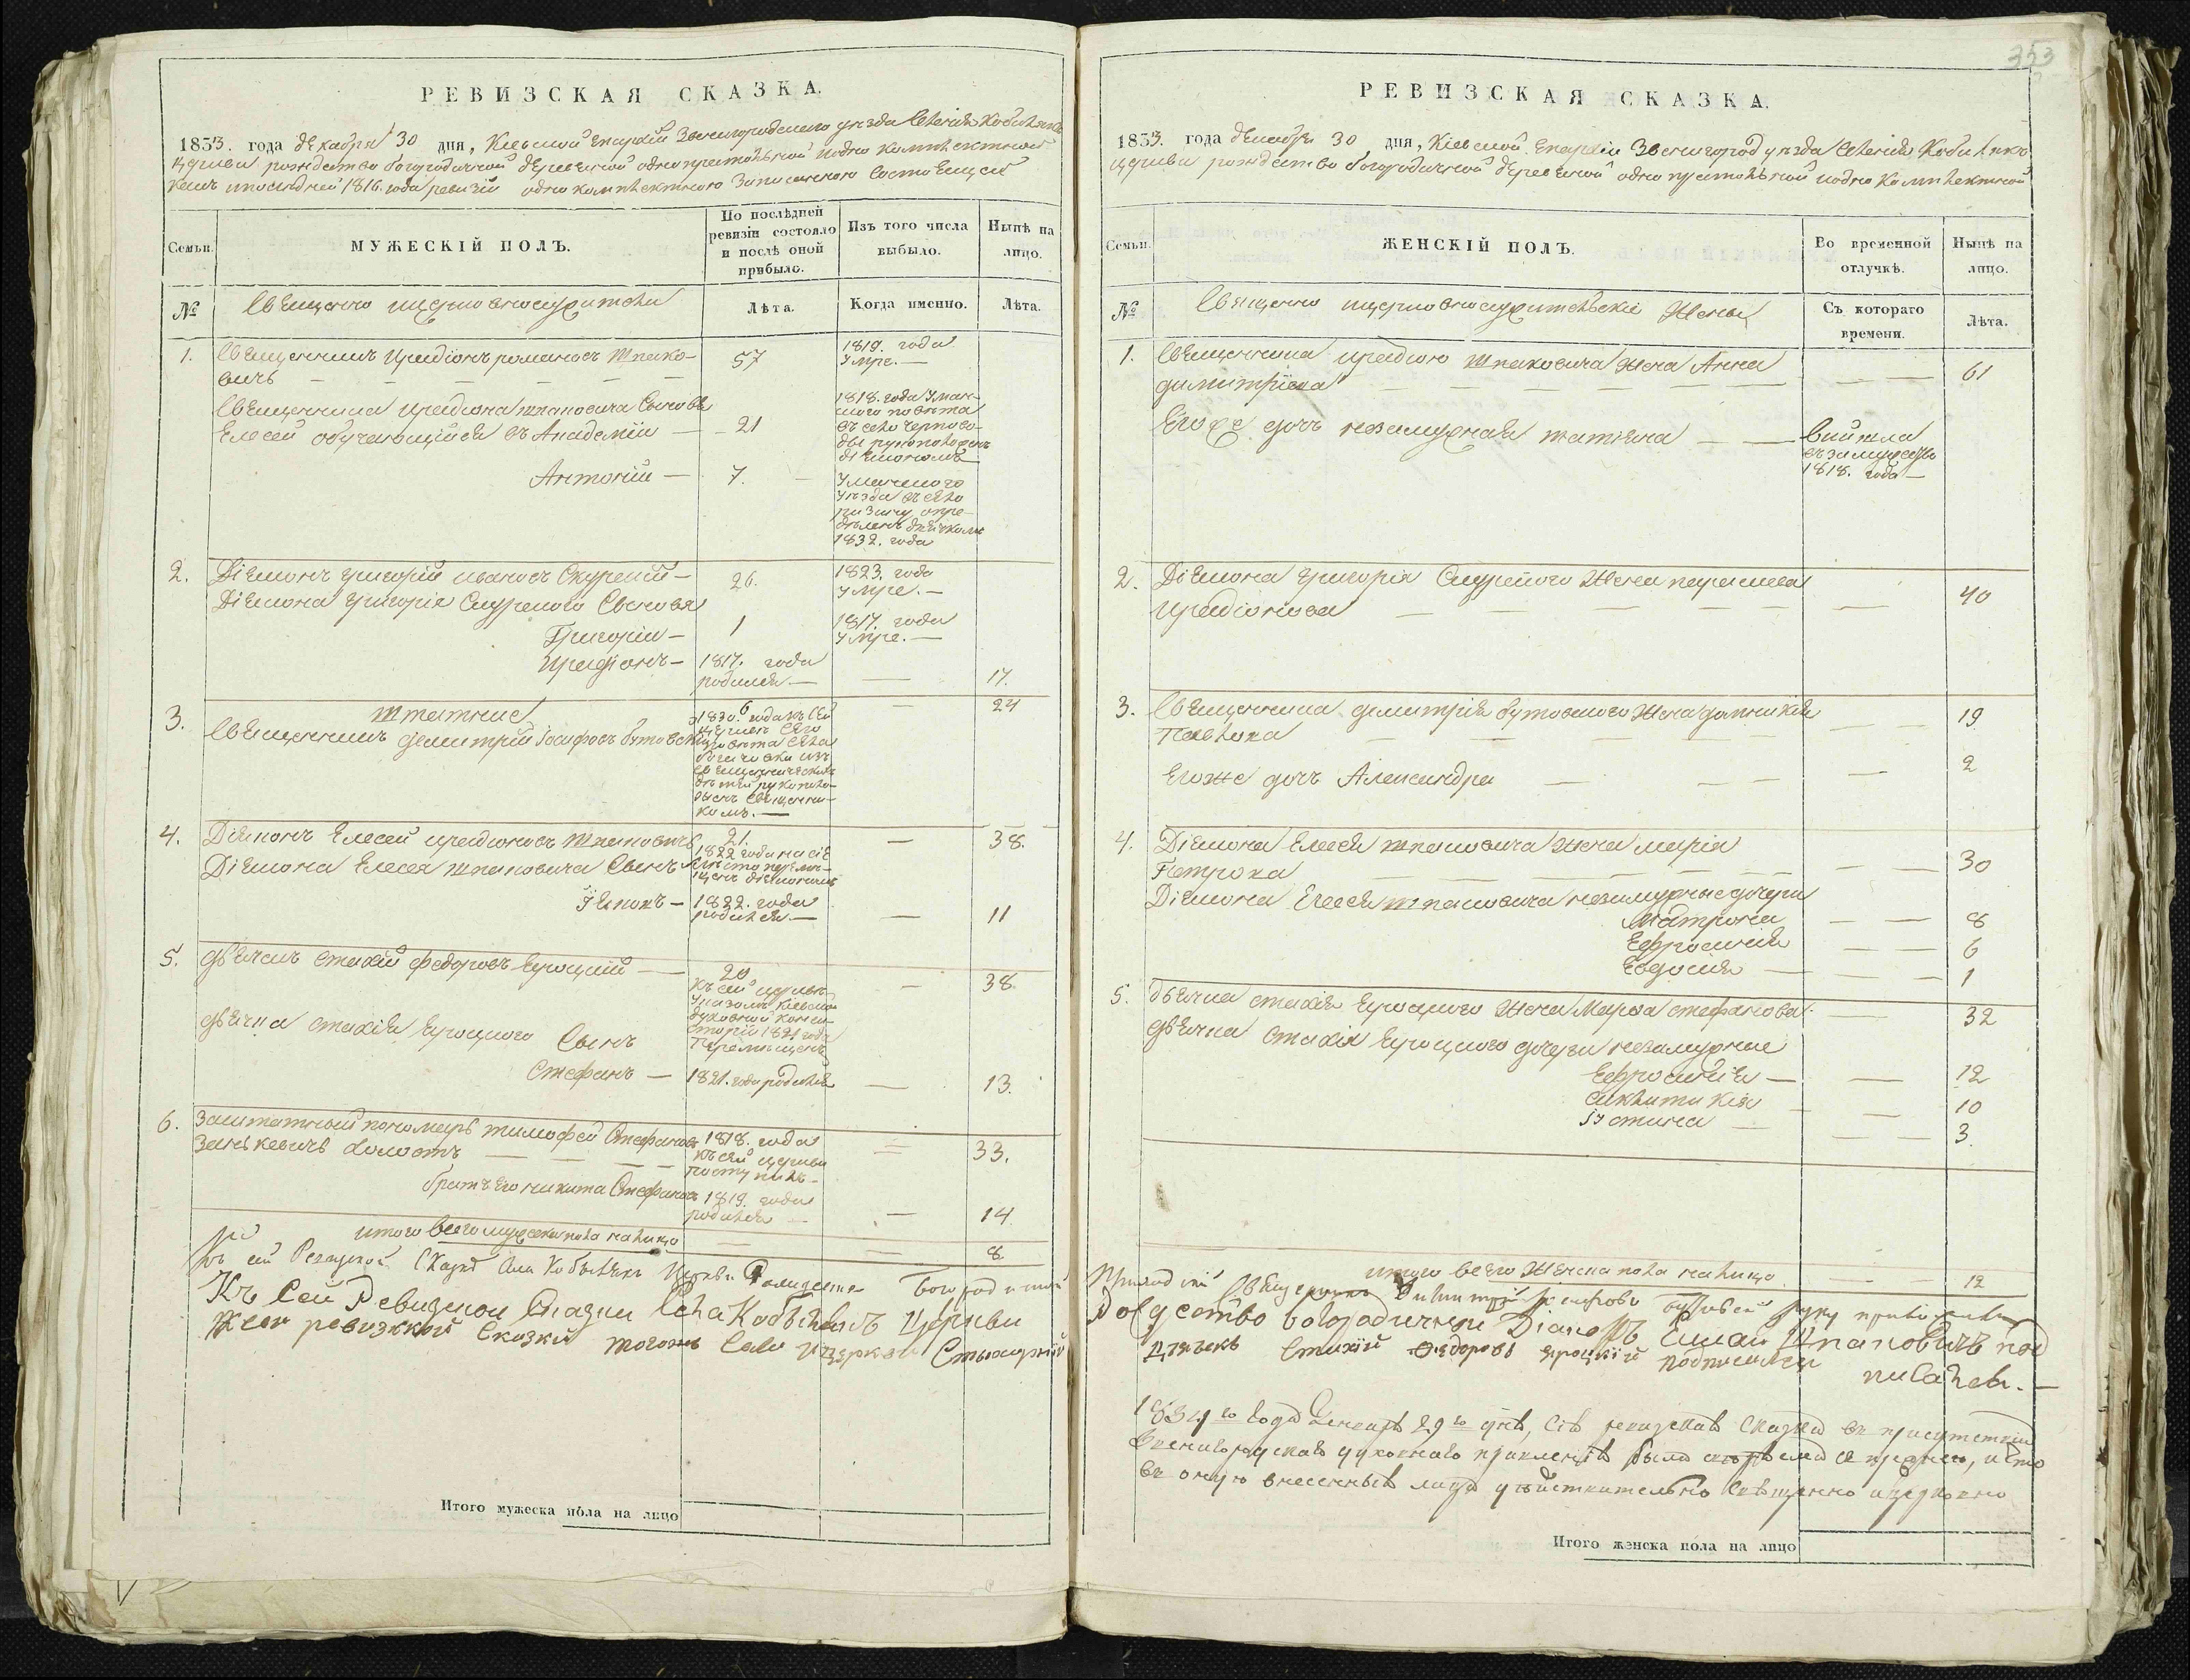 353
РЕВИЗСКАЯ СКАЗКА.
1833. года декабря 30 дня, Киевской Епархии Звенигородского уезда Селения Кобиляк
церкви рождество богородичной деревяной однопрестольной и однокомплектной
1816. года ревизии однокомплектного
Семьи.
МУЖЕСКІЙ ПОЛЪ.
По послѣдней ревизіи состояло и послѣ оной прибыло.
Изъ того числа выбыло.
Нынѣ на лицо.
№
Священно и церковнослужители
Лѣта.
Когда именно.
Лѣта.
1.
Священникъ Иродіонъ романовъ Шпако-
вичь
57
1819. года
умре.
Священника Иродіона Шпаковича Сыновья
Елесей обучающійся въ Академіи
21
1818. года Уман-
ского повѣта
въ село Черпово-
ды рукоположенъ
діякономъ
Антоній
7.
Уманского
уѣзда въ село
опре-
дѣленъ дьячкомъ
1832. года
2.
Діяконъ Григорій ивановъ Скурскій
26.
1823. года
умре.
Діякона Григорія Скурского Сыновья
Григорій
1
1817. года
умре.
Иродіонъ
1817. года
родился.
17.
Штатние
3.
Священникъ Димитрій Іосифовъ бутовскій
1830. года къ сей
церквѣ сего
повѣта села
изъ
священническихъ
дѣтей рукополо-
женъ священни-
комъ.
24
4.
Діяконъ Елесей иродіоновъ Шпаковичъ
21.
1822 года на сіе
мѣсто перемѣ-
щенъ діякономъ
38.
Діякона Елесея Шпаковича Сынъ
1822. года
родился.
11
5.
Дьячекъ Стахій федоровъ Яроцкій
20
къ сей церквѣ
Указомъ Кіевской
духовной Конси-
сторіи 1821 года
Перемѣщенъ
38.
дьячка Стахія Яроцкого Сынъ
Стефанъ
1821. года родился
13.
6.
Заштатный пономарь тимофей Стефановъ
Зенькевичь холостъ
1818. года
къ сей церкви
поступилъ
33.
братъ его никита Стефановъ
1819. года
родился
14
итого всего мужеска пола на лицо
8
Къ сей Ревизской Сказкѣ Села Кобыляк Церкви Рождества Богородичной
Къ сей Ревизской Сказки Села Кобыляк Церкви
Ксей ревизкой Сказки тогожъ Села Ицеркви Стыхарній
Итого мужеска пола на лицо
РЕВИЗСКАЯ СКАЗКА.
1833. года декабря 30 дня, Кіевской Епархіи Звенигород уезда Селения Кобиляк
церкви рождество богородичной деревяной однопрестольной и однокомплектной
Семьи.
ЖЕНСКІЙ ПОЛЪ.
Во временной отлучкѣ.
Нынѣ на лицо.
№
Священно ицерковнослужительскіе Жены
Съ котораго времени.
Лѣта.
1.
Священника иродіона Шпаковича Жена Анна
димитріева
61
Егоже дочъ незамужная татіяна
вийшла
въ замужство
1818. года
2.
Діякона Григорія Скурского Жена параскева
Иродіонова
40
3.
Священника димитрія бутовского Жена домникія
Павлова
19
Егоже дочъ Александра
2
4.
Діякона Елесея шпаковича Жена марія
Петрова
30
Діякона Елесея шпаковича незамужные дочери
Матрона
8
Ефросинія
6
Евдокія
1
5.
дьячка стахія Яроцкого Жена Марфа стефанова
32
дьячка стахія Яроцкого дочери незамужные
Ефросинія
12
сиклитикія
10
Іустина
3.
итого всего Женска пола на лицо
12
Приходскій Священникъ Димитрій Іосифовъ Бутовскій руку приложилъ
Рождество богородичной Діаконъ Елисей Шпаковичъ под
писался.
Дячекъ Стахій Федоровъ Яроцкій подписался
1834го года Генваря 29го дня, Сія ревизская Сказка въ присутствіи
Звенигородскаго духовнаго правленія была, и что
въ оную внесенныя лица дѣйствительно Священно ицерковно
Итого женска пола на лицо